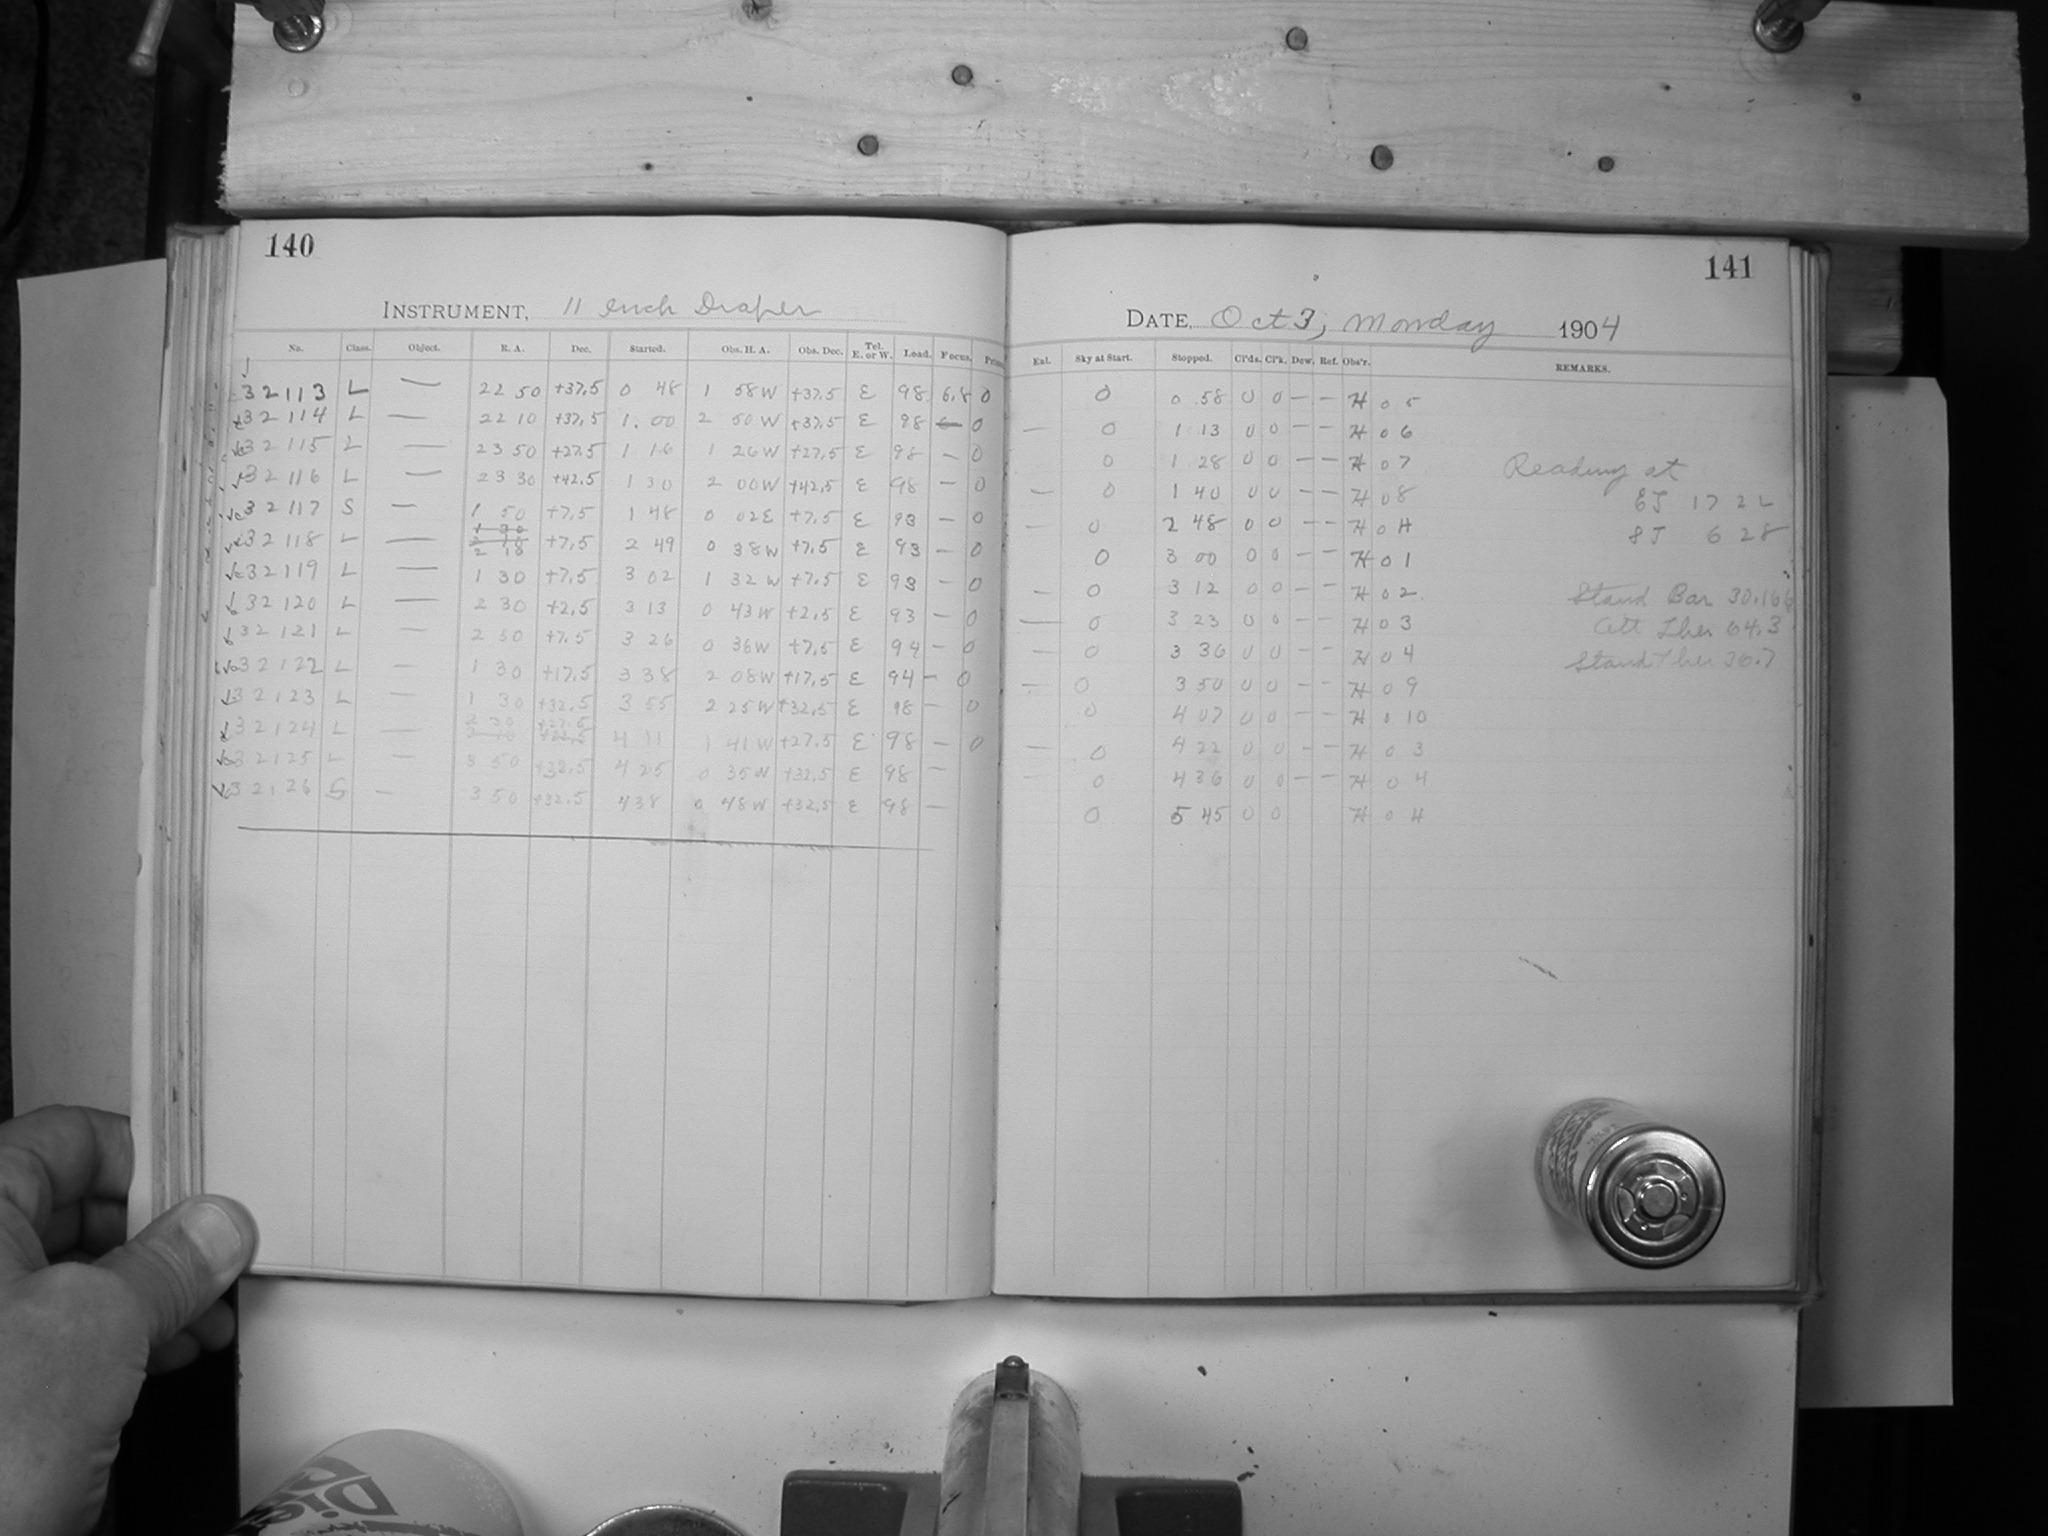 140
INSTRUMENT, 11 inch Draper
No. Class. Object. R. A. Dec. Started. Obs. H. A. Obs. Dec. Tel. E. or W. Load. Focus.
32113 L — 22 50 +37.5 0 48 1 58W +37.5 E 98 6.8 0
32114 L — 22 10 +37.5 1.00 2 50W +37.5 E 98 0
32115 L — 23 50 +27.5 1 16 1 26W +27.5 E 98 — 0
32116 L — 23 30 +42.5 1 30 2 00W +42.5 E 98 — 0
32117 S — 1 50 +7.5 1 48 0 02E +7.5 E 93 — 0
32118 L — 2 18 +7.5 2 49 0 38W +7.5 E 93 — 0
32119 L — 1 30 +7.5 3 02 1 32W +7.5 E 93 — 0
32120 L — 2 30 +2.5 3 13 0 43W +2.5 E 93 — 0
32121 L — 2 50 +7.5 3 26 0 36W +7.5 E 94 — 0
32122 L — 1 30 +17.5 3 38 2 08W +17.5 E 94 — 0
32123 L — 1 30 +32.5 3 55 2 25W +32.5 E 98 — 0
32124 L — 2 30 +27.5 4 11 1 41W +27.5 E 98 — 0
32125 L — 3 50 +32.5 4 25 0 35W +32.5 E 98 —
32126 S — 3 50 +32.5 4 38 0 48W +32.5 E 98 —
141
DATE, Oct 3, Monday 1904
Ent. Sky at Start. Stopped. Cl'ds. Cl'k. Dew. Ref. Obs'r. REMARKS.
0 0 58 0 0 — — H 05
— 0 1 13 0 0 — — H 06
0 1 28 0 0 — — H 07 Reading at
— 0 1 40 0 0 — — H 08 EJ 17 22
— 0 2 48 0 0 — — H 0H SJ 6 28
0 3 00 0 0 — — H 01
— 0 3 12 0 0 — — H 02 Stand Bar
— 0 3 23 0 0 — — H 03 Att Ther 64.3
— 0 3 36 0 0 — — H 04 Stand Ther 36.7
— 0 3 50 0 0 — — H 09
0 4 07 0 0 — — H 010
— 0 4 22 0 0 — — H 03
— 0 4 36 0 0 — — H 04
0 5 45 0 0 H 04
Die